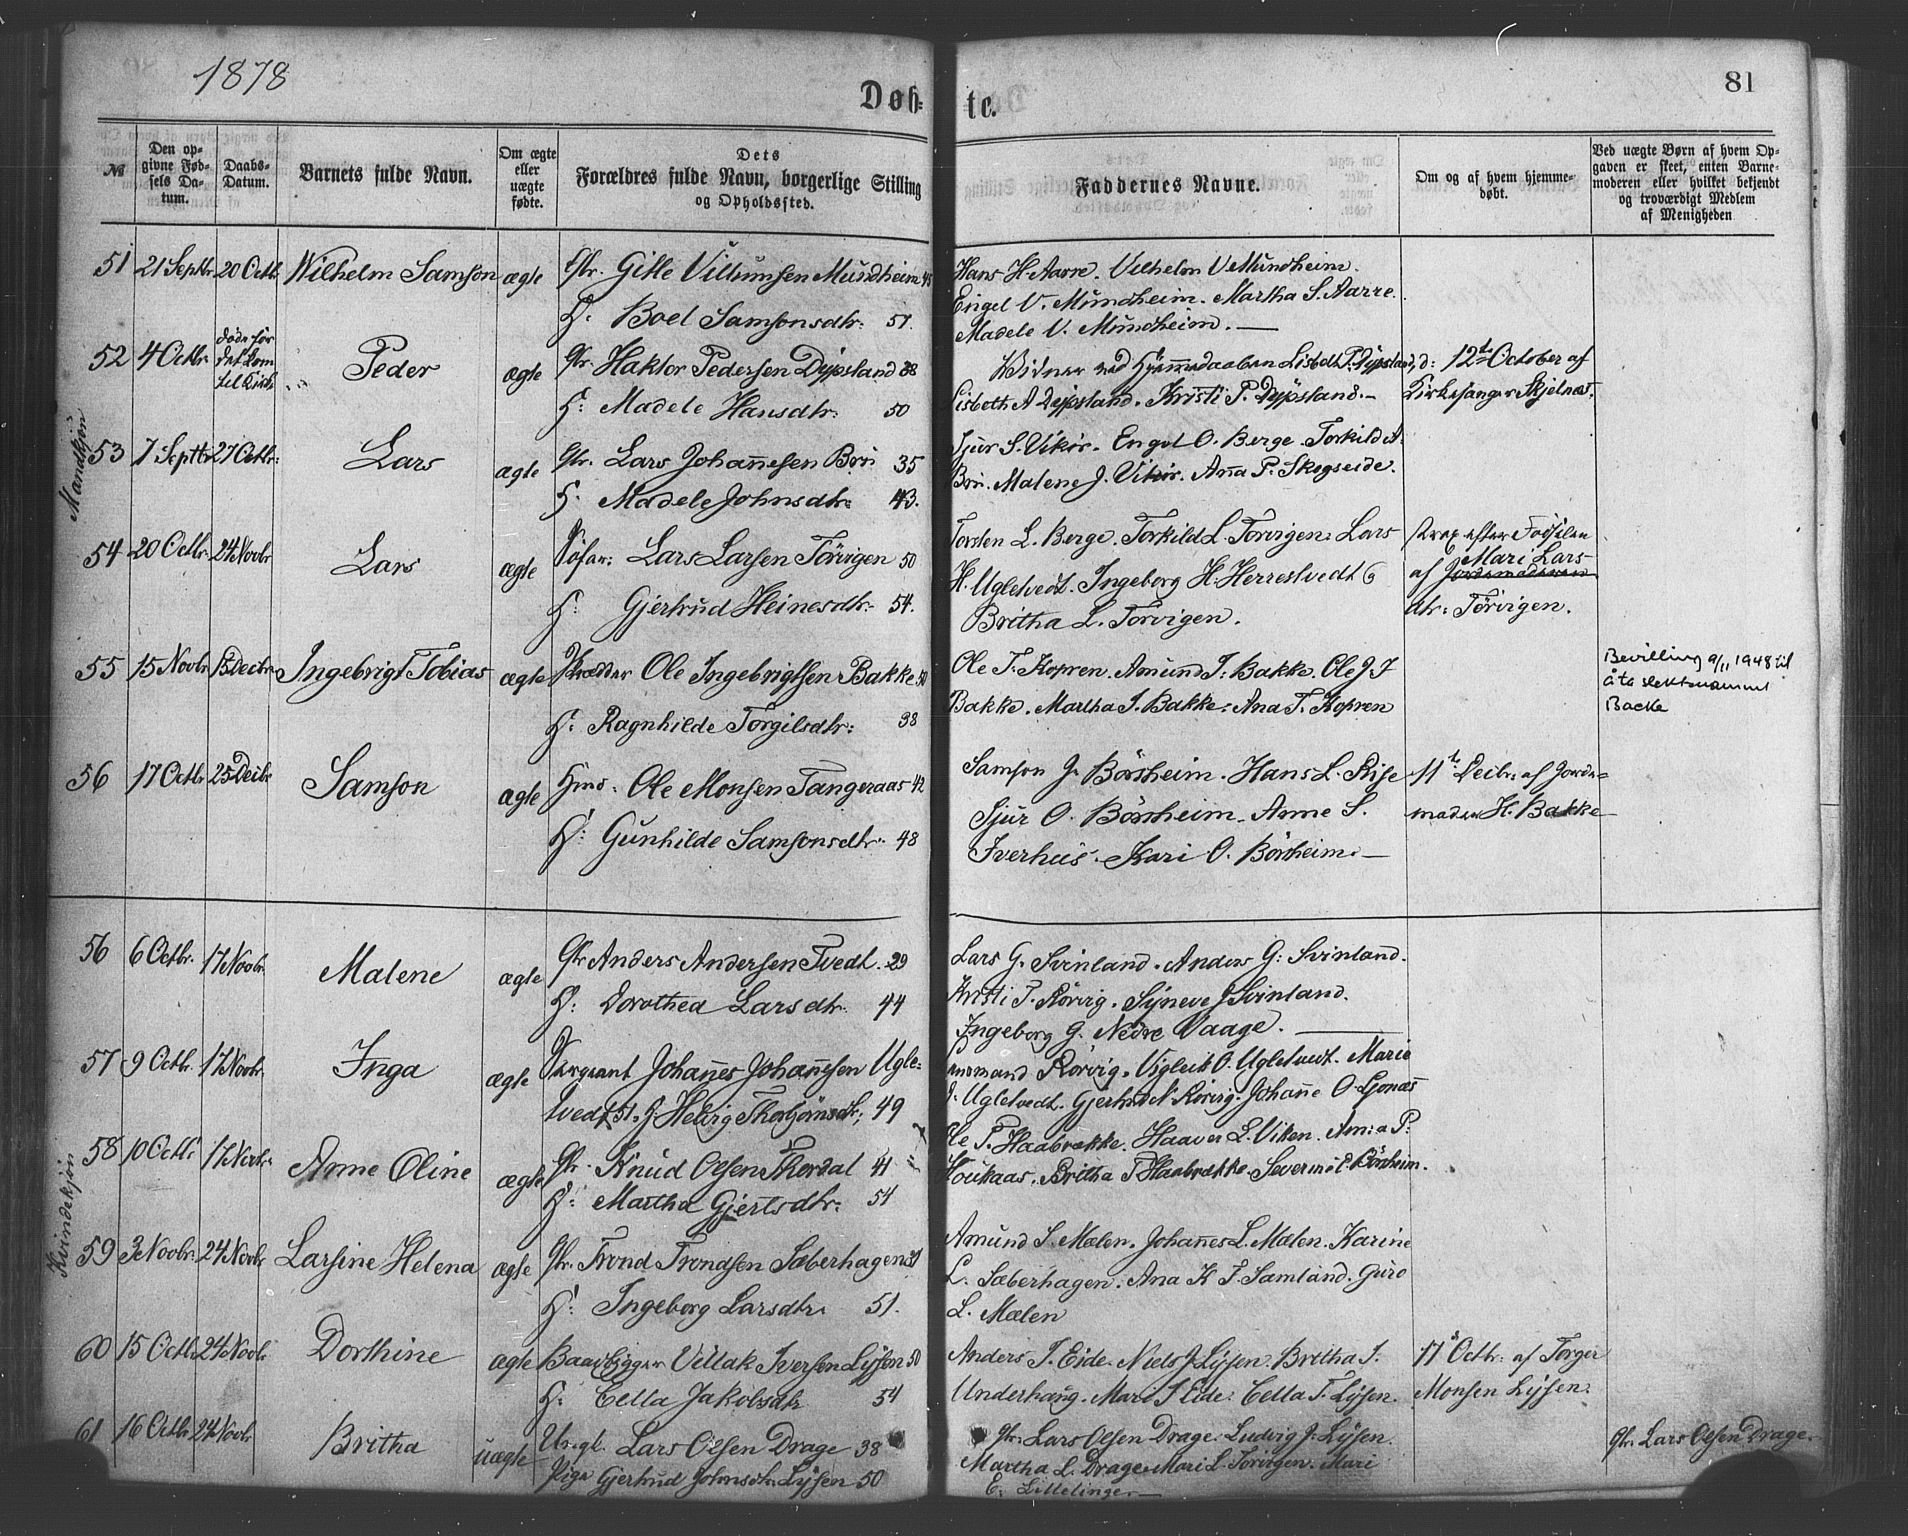 1878
Døb-
te.
81
№
Den op-
givne Fød-
sels Da-
tum.
Daabs-
Datum.
Barnets fulde Navn.
Om ægte
eller
uægte
fødte.
Dets
Forældres fulde Navn, borgerlige Stilling
og Opholdssted.
Faddernes Navne.
Om og af hvem hjemme-
døbt.
Ved uægte Børn af hvem Op-
gaven er skeet, enten Barne-
moderen eller hvilket bekjendt
og troværdigt Medlem
af Menigheden
Mandkjøn
51 21 Septbr. 20 Octb. Wilhelm Samson ægte Gbr. Gitle Villumsen Mundheim 45
H: Boel Samsonsdtr: 51.
Hans H. Aarre. Vilhelm V Mundheim.
Engel V. Mundheim. Martha S. Aarre.
Madele V. Mundheim. —
52 4 Octbr. døde før
det kom
til Kirke Peder ægte Gbr Haktor Pedersen Dypsland 38
H: Madele Hansdtr: 50
Vidner ved Hjemmedaaben Lisbeth P. Dypsland,
Lisbeth A Dypsland. Kristi P. Dypsland. –
d: 12te October af
Kirkesanger Skjelnæs.
53 7 Septbr 27 Octbr: Lars ægte Gbr. Lars Johannesen Bru 35
H: Madele Johnsdtr: 43.
Sjur S. Vikør. Engel O. Berge. Torkild A.
Bru. Malene J. Vikør. Anna P. Skogseide.
54 20 Octbr. 24 Novbr Lars ægte Lars Larsen Törvigen 50
H: Gjertrud Heinesdtr. 54.
Torsten L. Berge. Torkild L. Torvigen. Lars
H. Ugletvedt. Ingeborg H. Herrestvedt
Britha L. Torvigen.
strax efter Födselen
Mari Lars-
af Jordemoderen
dtr: Törvigen.
55 15 Novbr 15 Decbr Ingebrigt Tobias ægte Ole Ingebrigtsen Bakke 40
H: Ragnhilde Torgilsdtr: 38
Ole T. Kopren. Amund T: Bakke. Ole J. T
Bakke. Martha I. Bakke. Ana T. Kopren
Bevilling 9/11 1948 til
å ta slektsnavnet
Backe
56 17 Octbr 25 Decbr Samson ægte Hmd. Ole Monsen Tangeraas 42
H: Gunhilde Samsonsdtr. 48
Samson J. Börsheim. Hans L. Rise
Sjur O. Börsheim. Anne S.
Iverhus. Kari O. Börsheim. —
11te Decbr. af Jorde-
moder H. Bakke
Kvindekjön
56 6 Octbr. 17 Novbr. Malene ægte Gbr Anders Andersen Tvedt. 29
H: Dorothea Larsdtr. 44
Lars G. Svinland. Anders G: Svinland.
Kristi T. Rörvig. Syneve J Svinland.
Ingeborg G. Nedre Vaage. —
57 9 Octbr. 17 Novbr. Inga ægte Sergeant Johannes Johannesen Ugle-
tvedt 51. H: Hedvig Thorbjörnsdtr, 49
Rörvig. Vigleik O. Ugletvedt. Marie
J. Ugletvedt. Gjertrud Rörvig. Johanne O. Ljonæs
58 10 Octbr 17 Novbr. Anne Oline ægte Gbr. Knud Olsen Thordal 41
H: Martha Gjertsdtr: 54
Ole P. Haabrække. Haaver L. Viken. Anna P:
Houkaas. Britha T Haabrække. Severine E. Börsheim.
59 3 Novbr. 24 Novbr Larsine Helena ægte Gbr. Trond Trondsen Sæberhagen 31
H: Ingeborg Larsdtr. 51.
Amund S. Mælen. Johannes L. Mælen. Karine
L. Sæberhagen. Ana K T. Samland. Guro
L. Mælen
60 15 Octbr 24 Novbr Dorthine ægte Baadbygger Villak Iversen Lyssen 50
H: Cella Jakobsdtr 54
Anders T. Eide. Niels J Lyssen. Britha I.
Underhaug. Mari I Eide. Cella T. Lyssen.
17de Octbr: af Torger
Monsen Lyssen.
61 16 Octbr 24 Novbr. Britha uægte Ungk. Lars Olsen Drage 38
Pige Gjertrud Johnsdtr. Lyssen 50
Gbr. Lars Olsen Drage. Ludvig J. Lyssen.
Martha L. Drage. Mari L. Törvigen. Mari
E. Littletinger. —
Gbr. Lars Olsen Drage.